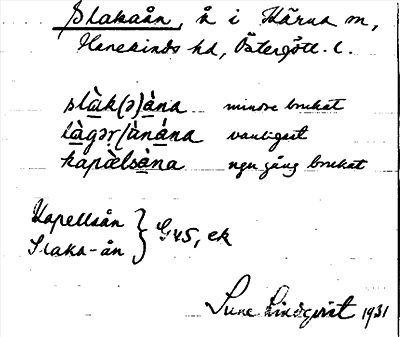 Slakaån, å i Kärna sn,
Hanekinds hd, Östergötl. l.
slàk(ə)ȧ̀na mindre brukat
lȧ̀gər/ȧ̀nȧ́na vanligast
kapæ̀lsȧ̀na ngn gång brukat
Kapellsån
Slaka-ån } G45, ek
Sune Lindqvist 1931